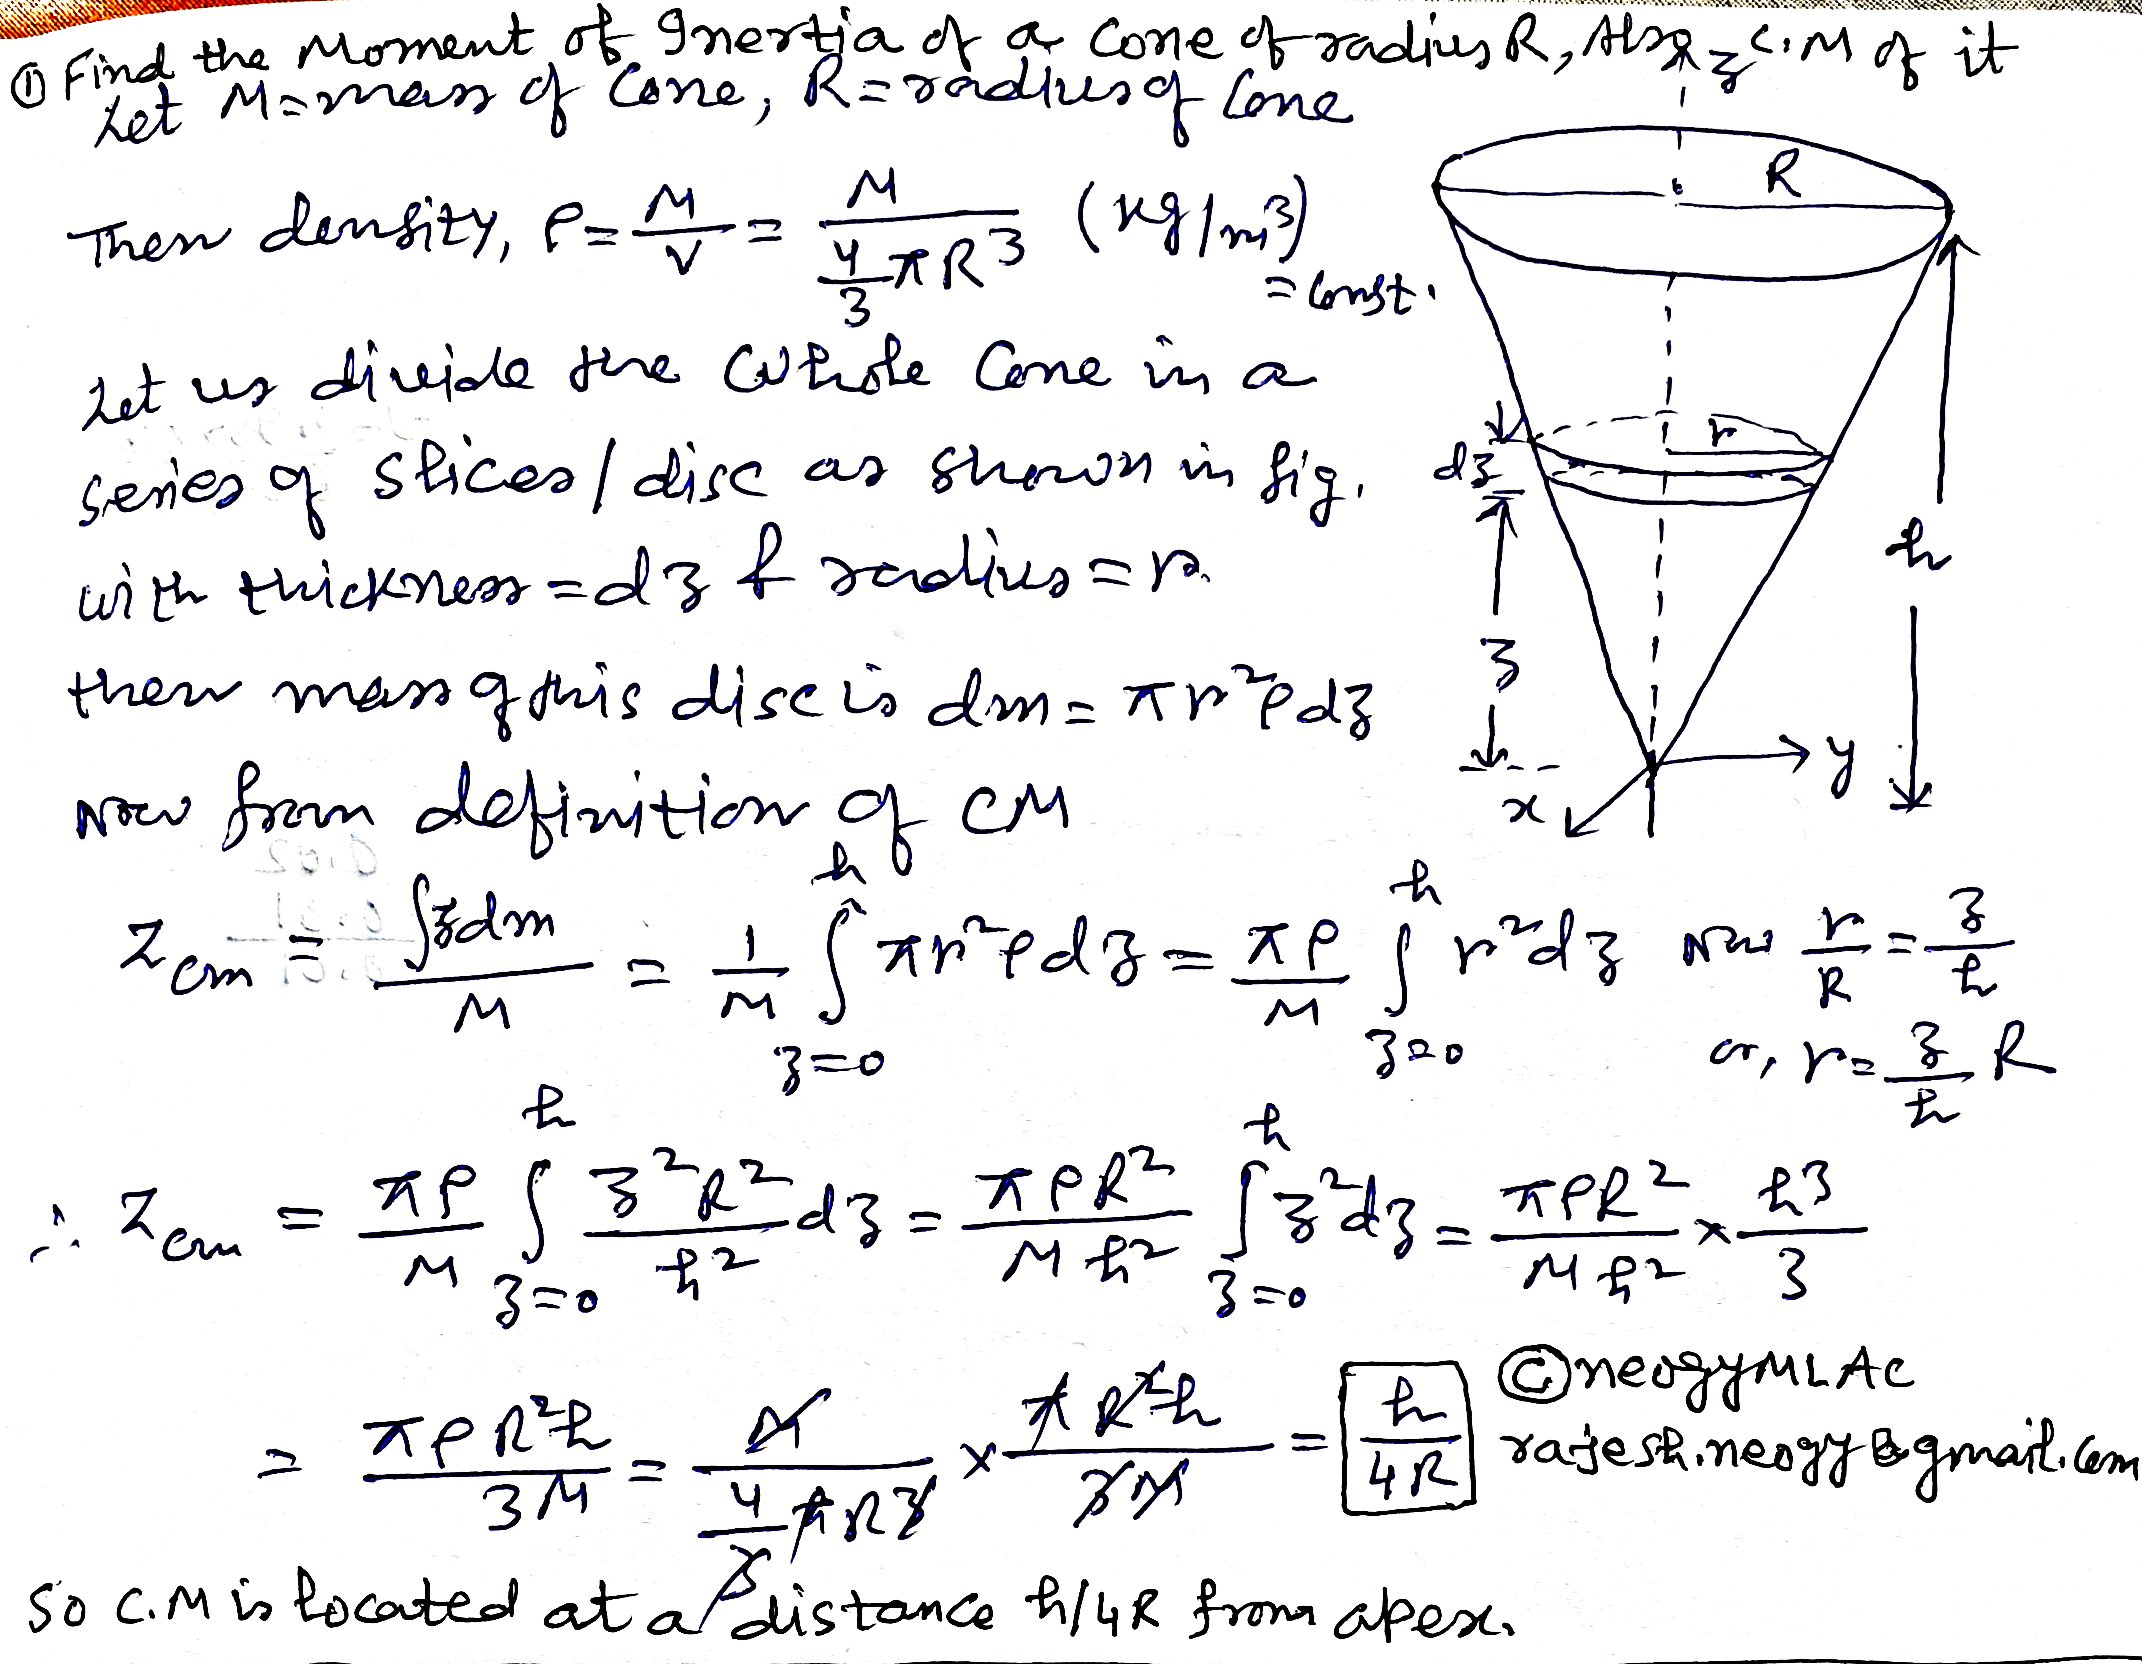 ① Find the Moment of Inertia of a Cone of radius R, Also C.M of it
Let M = mass of Cone, R = radius of Cone
Then density, ρ = M/V = M/(4/3 πR³) (kg/m³)
= const.
Let us divide the whole Cone in a
series of slices/disc as shown in fig.
with thickness = dz & radius = r.
then mass of this disc is dm = πr²ρdz
Now from definition of CM
Z_cm = ∫zdm/M = 1/M ∫_{z=0}^{h} πr²ρdz = πρ/M ∫_{z=0}^{h} r²dz Now r/R = z/h
or, r = z/h R
∴ Z_cm = πρ/M ∫_{z=0}^{h} z²R²/h² dz = πρR²/Mh² ∫_{z=0}^{h} z²dz = πρR²/Mh² × h³/3
= πρR²h/3M = M/(4/3 πR³) × πR²h/3M = h/4R
©neogyMLAC
rajesh.neogy@gmail.com
So C.M is located at a distance h/4R from apex.
z
R
r
dz
h
z
y
x